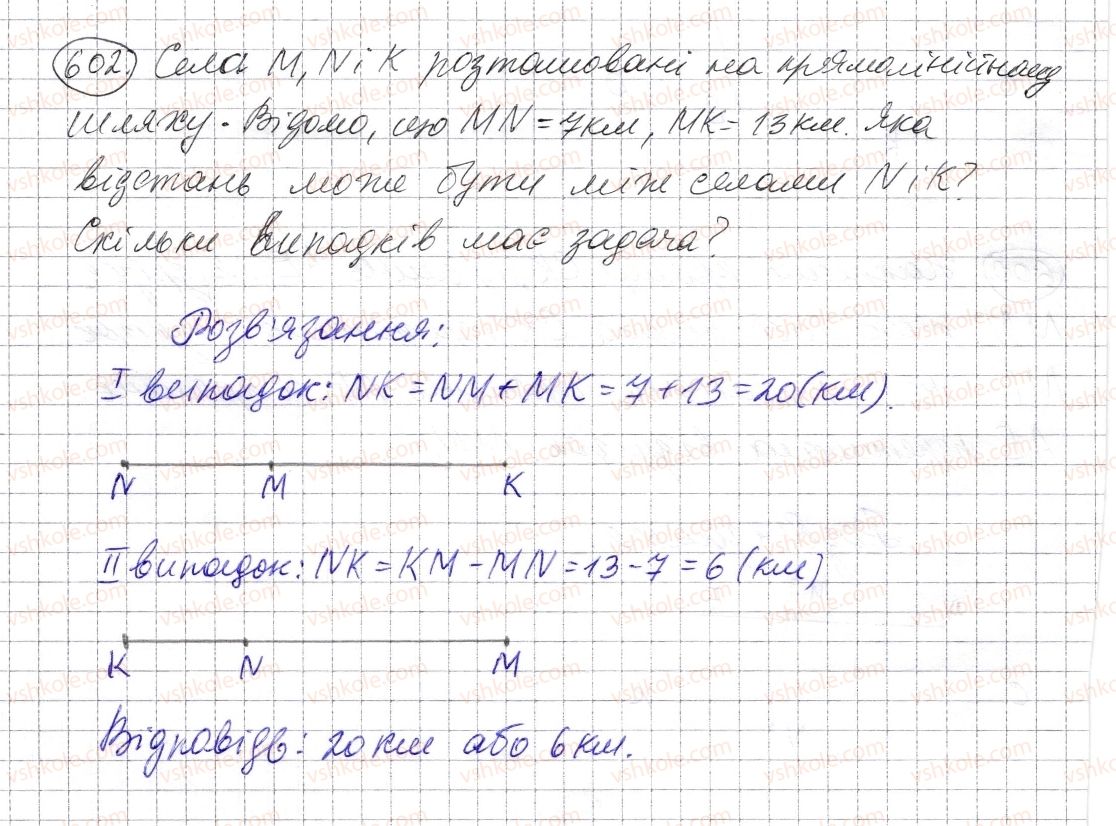 602. Села M, N і K розташовані на прямолінійному
шляху. Відомо, що MN = 7 км, MK = 13 км. Яка
відстань може бути між селами N і K?
Скільки випадків має задача?
Розв'язання:
I випадок: NK = NM + MK = 7 + 13 = 20 (км).
N M K
II випадок: NK = KM - MN = 13 - 7 = 6 (км)
K N M
Відповідь: 20 км або 6 км.